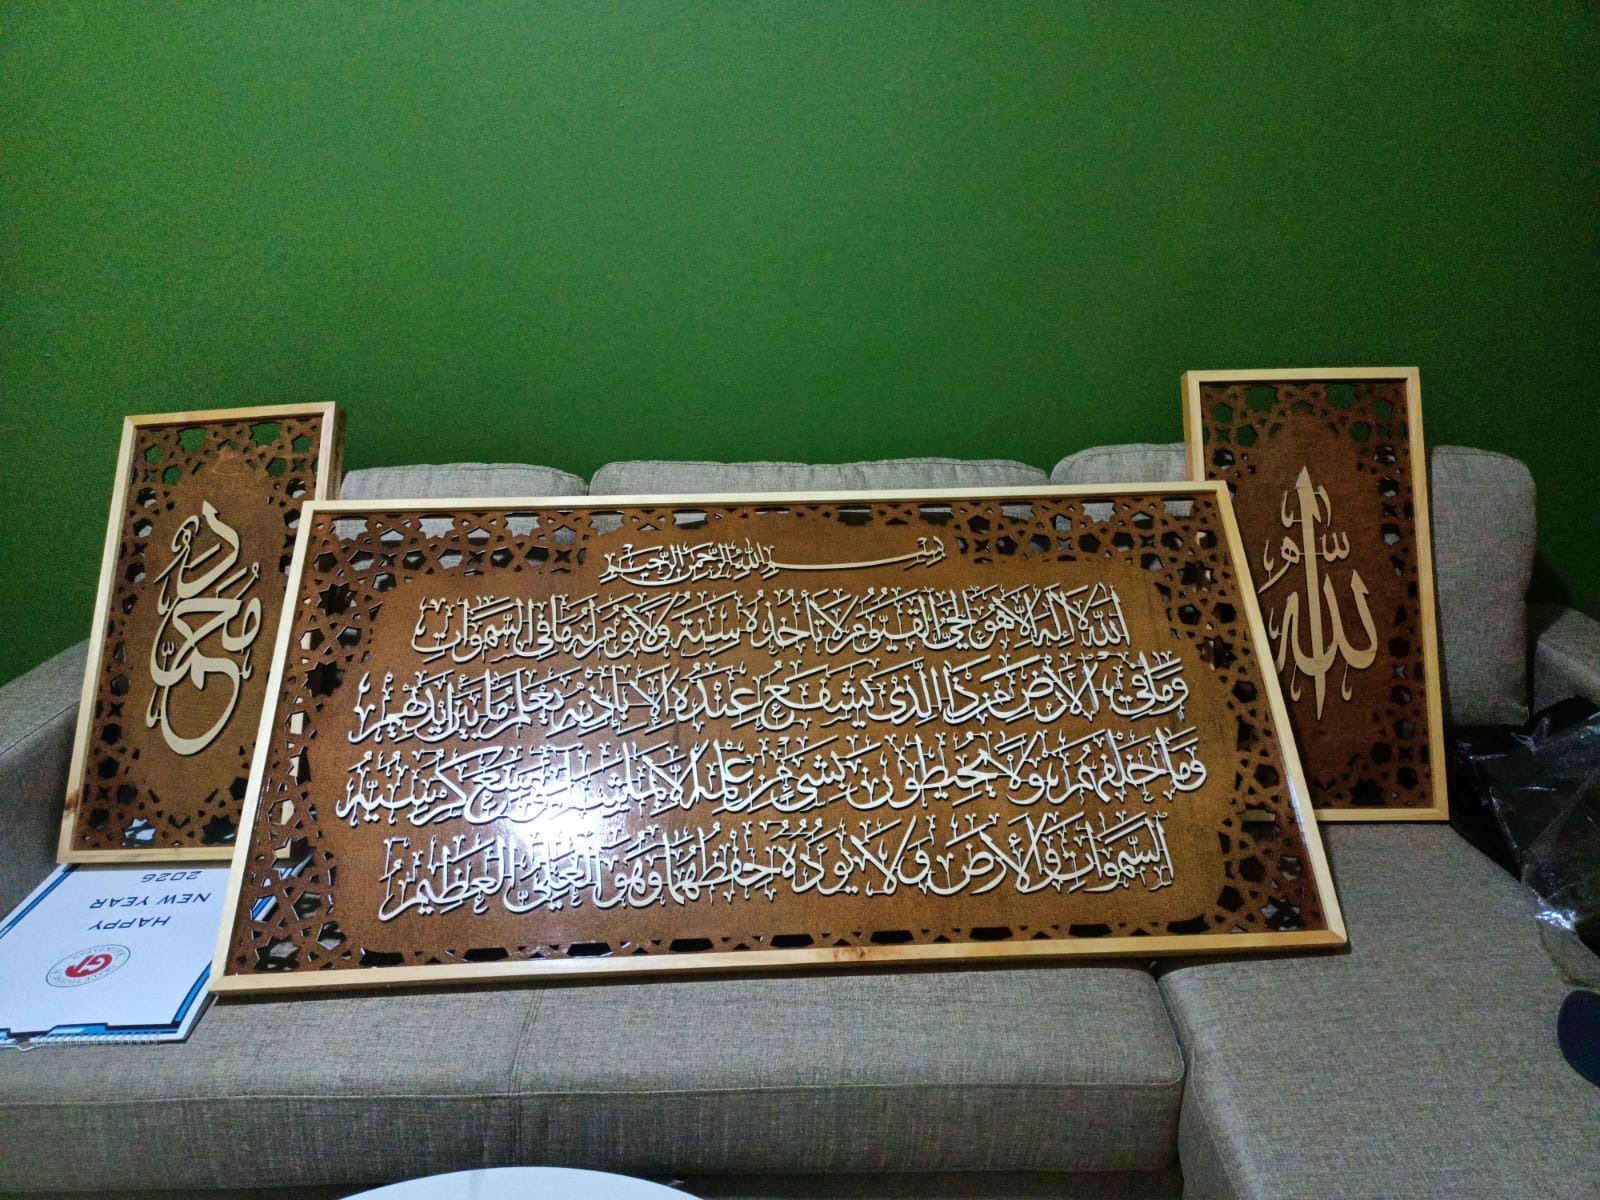 بسم الله الرحمن الرحيم
الله لا إله إلا هو الحي القيوم لا تأخذه سنة ولا نوم له ما في السموات
وما في الأرض من ذا الذي يشفع عنده إلا بإذنه يعلم ما بين أيديهم
وما خلفهم ولا يحيطون بشيء من علمه إلا بما شاء وسع كرسيه
السموات والأرض ولا يؤده حفظهما وهو العلي العظيم
محمد
الله
HAPPY
NEW YEAR
2026
GT